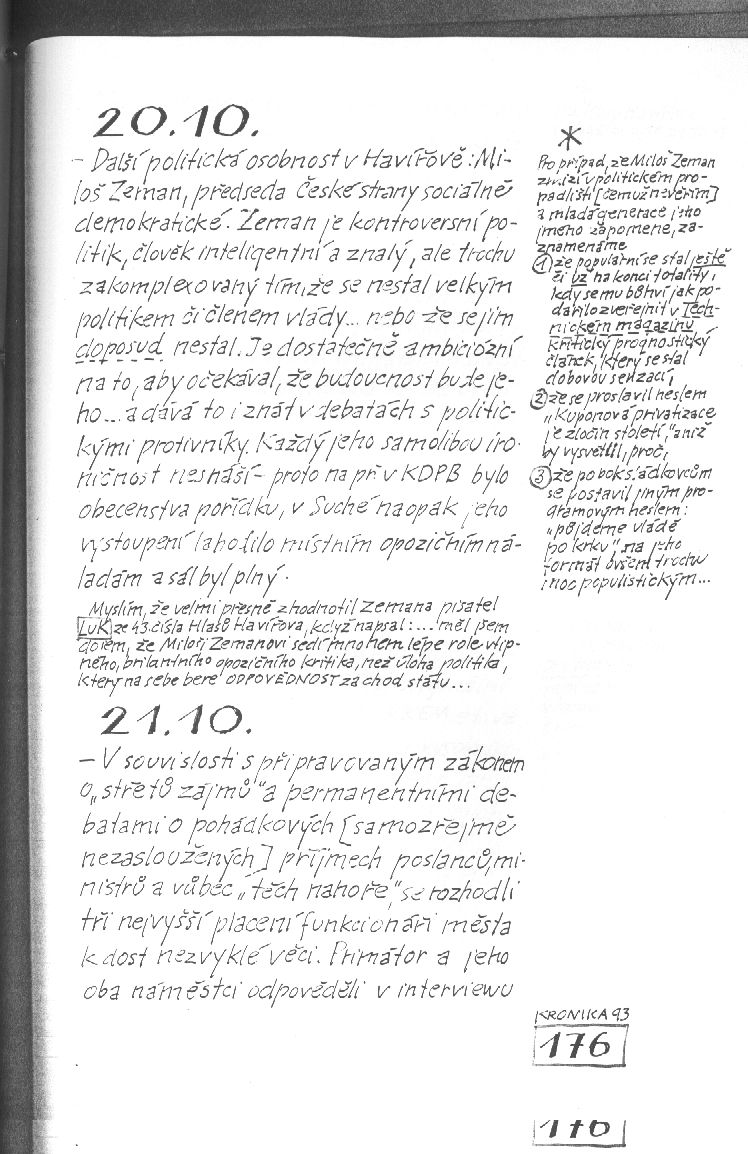 20.10.
- Další politická osobnost v Havířově: Mi-
loš Zeman, předseda České strany sociálně
demokratické. Zeman je kontroversní po-
litik, člověk inteligentní a znalý, ale trochu
zakomplexovaný tím, že se nestal velkým
politikem či členem vlády... nebo že se jím
doposud nestal. Je dostatečně ambiciózní
na to, aby očekával, že budoucnost bude je-
ho... a dává to i znát v debatách s politic-
kými protivníky. Každý jeho samolibou iro-
ničnost nesnáší - proto např v KDPB bylo
obecenstva pořídku, v Suché naopak jeho
vystoupení lahodilo místním opozičním ná-
ladám a sál byl plný.
Myslím, že velmi přesně zhodnotil Zemana pisatel
LuK ze 43. čísla Hlasů Havířova, když napsal: ... měl jsem
dojem, že Miloši Zemanovi sedí mnohem lépe role vtip-
ného, brilantního opozičního kritika, než úloha politika,
který na sebe bere ODPOVĚDNOST za chod státu...
21.10.
- V souvislosti s připravovaným zákonem
o „střetů zájmů" a permanentními de-
batami o pohádkových [samozřejmě
nezasloužených] příjmech poslanců, mi-
nistrů a vůbec „těch nahoře," se rozhodli
tři nejvyšší placení funkcionáři města
k dost nezvyklé věci. Primátor a jeho
oba náměstci odpověděli v interviewu
*
Pro případ, že Miloš Zeman
zmizí v politickém pro-
padlišti [čemuž nevěřím]
a mladá generace jeho
jméno zapomene, za-
znamenáme
① že populárním se stal ještě
či už na konci totality,
kdy se mu bůhví jak po-
dařilo zveřejnit v Tech-
nickém magazínu
kritický prognostický
článek, který se stal
dobovou senzací,
② že se proslavil heslem
„Kuponová privatizace
je zločin století," aniž
by vysvětlil, proč,
③ že po bok sládkovcům
se postavil jiným pro-
gramovým heslem:
„půjdeme vládě
po krku" na jeho
formát ovšem trochu
moc populistickým...
KRONIKA 93
176
176